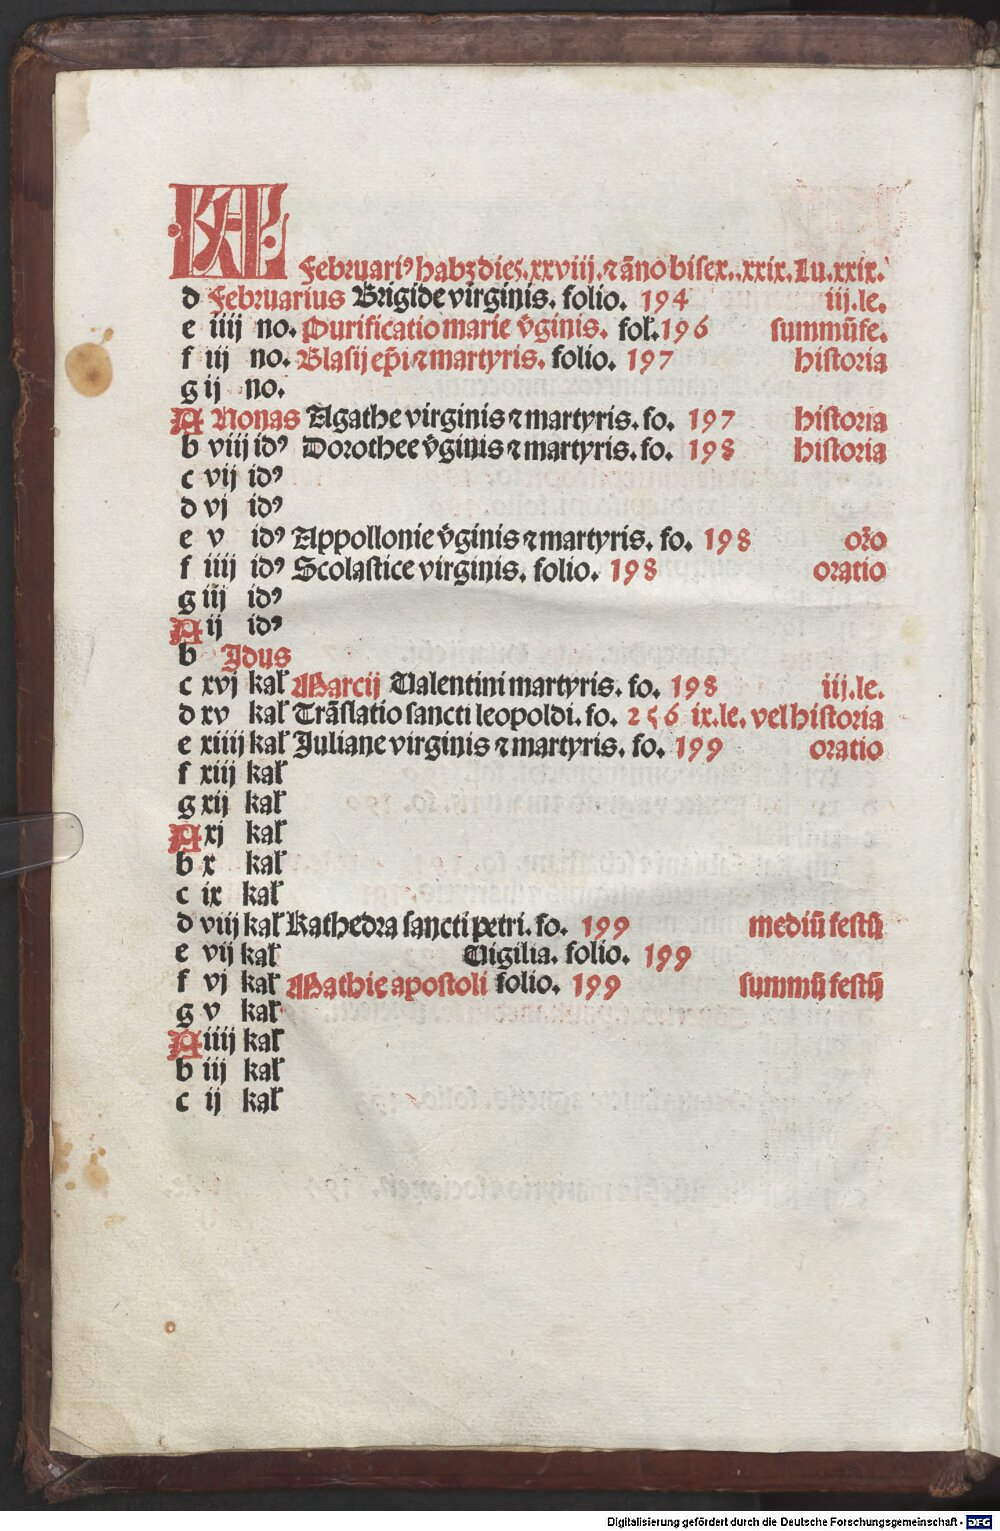 KAL
Februariꝰ habꝫ dies. xxviij. ⁊ āno bisex. . xxix. Lu. xxix.
d Februarius Brigide virginis. folio. 194 iij. le.
e iiij no. Purificatio marie v̄ginis. fol̄. 196 summū fe.
f iij no. Blasij ep̄i ⁊ martyris. folio. 197 historia
g ij no.
A Nonas Agathe virginis ⁊ martyris. fo. 197 historia
b viij idꝰ Dorothee v̄ginis ⁊ martyris. fo. 198 historia
c vij idꝰ
d vj idꝰ
e v idꝰ Appollonie v̄ginis ⁊ martyris. fo. 198 or̄o
f iiij idꝰ Scolastice virginis. folio. 198 oratio
g iij idꝰ
A ij idꝰ
b Idus
c xvj kal̄ Marcij Valentini martyris. fo. 198 iij. le.
d xv kal̄ Trāslatio sancti leopoldi. fo. 256 ix. le. vel historia
e xiiij kal̄ Juliane virginis ⁊ martyris. fo. 199 oratio
f xiij kal̄
g xij kal̄
A xj kal̄
b x kal̄
c ix kal̄
d viij kal̄ Kathedra sancti petri. fo. 199 mediū festū
e vij kal̄ Vigilia. folio. 199
f vj kal̄ Mathie apostoli folio. 199 summū festū
g v kal̄
A iiij kal̄
b iij kal̄
c ij kal̄
Digitalisierung gefördert durch die Deutsche Forschungsgemeinschaft - DFG